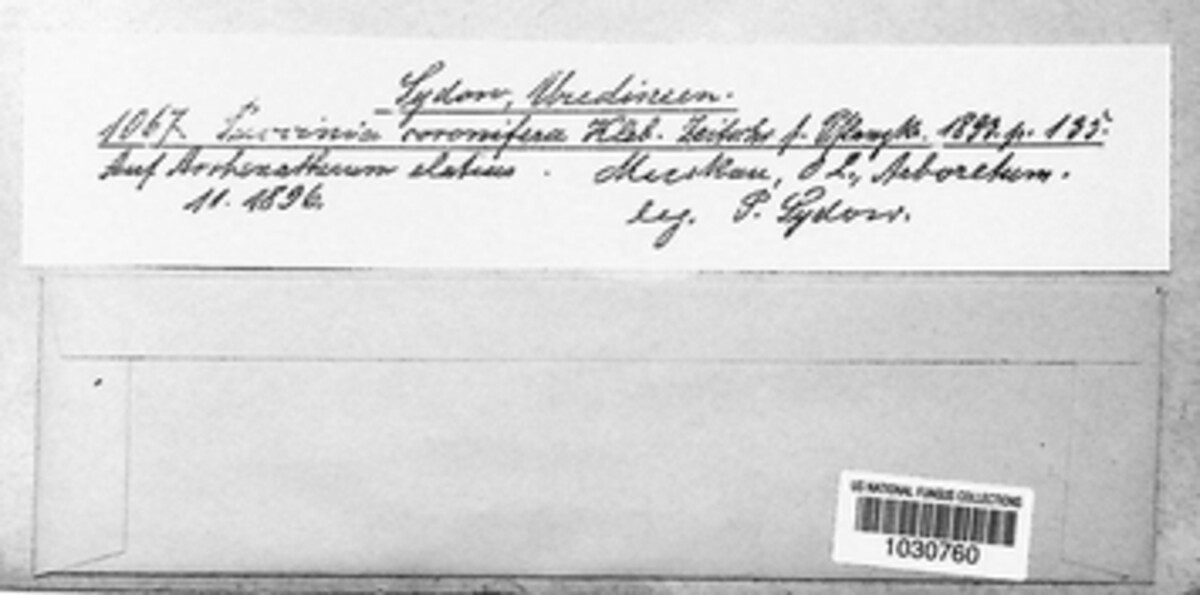 Sydow, Uredineen.
1067 Puccinia coronifera Kleb. Zeitschr. f. Pflanzkr. 1893. p. 135.
Auf Arrhenatherum elatius. Muskau, O L., Arboretum.
11. 1896. leg. P. Sydow.
US NATIONAL FUNGUS COLLECTIONS
1030760